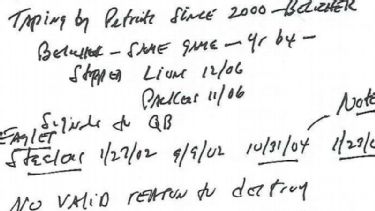 TAPING by Patriots SINCE 2000 – BELICHEK
Belichek – SAME game – yr by –
Stopped Lions 12/06
Packers 11/06
Signals to QB
Note
EAGLET
Steelers 1/27/02 9/9/02 10/31/04 1/23/0
NO VALID REASON to destroy